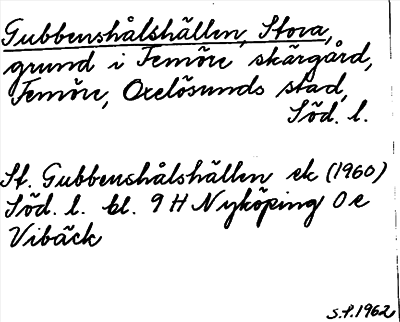 Gubbenshålshällen, Stora,
grund i Femöre skärgård,
Femöre, Oxelösunds stad,
Söd. l.
St. Gubbenshålshällen ek (1960)
Söd. l. bl. 9 H Nyköping O e
Vibäck
S.S. 1962